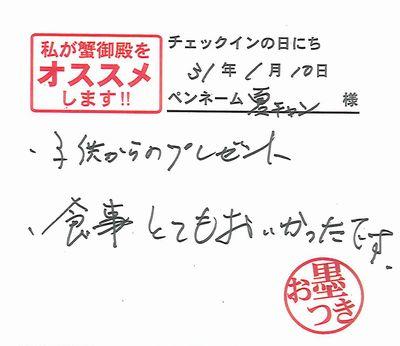 私が蟹御殿を
オススメ
します!!
チェックインの日にち
31年 1月 10日
ペンネーム 夏チャン 様
・子供からのプレゼント
・食事とてもおいかったです
お墨つき